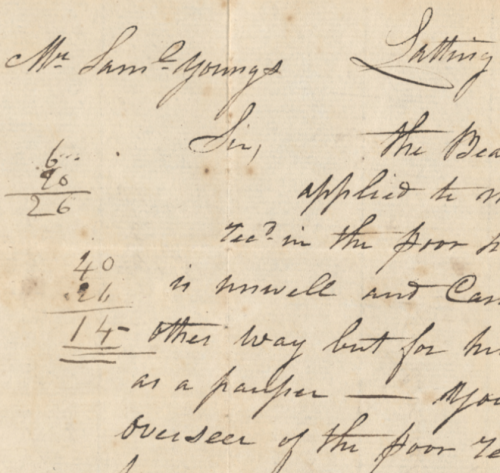 Mr Saml Youngs
Latting
Sir, the Bea
applied to m
recd in the poor h
is unwell and Can
other way but for hi
as a pauper — You
overseer of the poor re
6
20
26
40
26
14